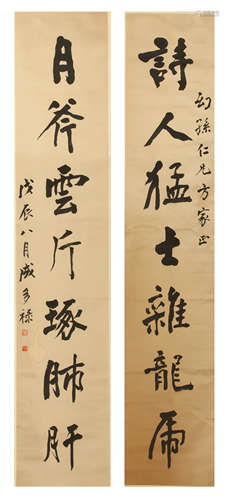 詩人猛士雜龍虎
幻孫仁兄方家正
月斧雲斤琢肺肝
戊辰八月成多祿